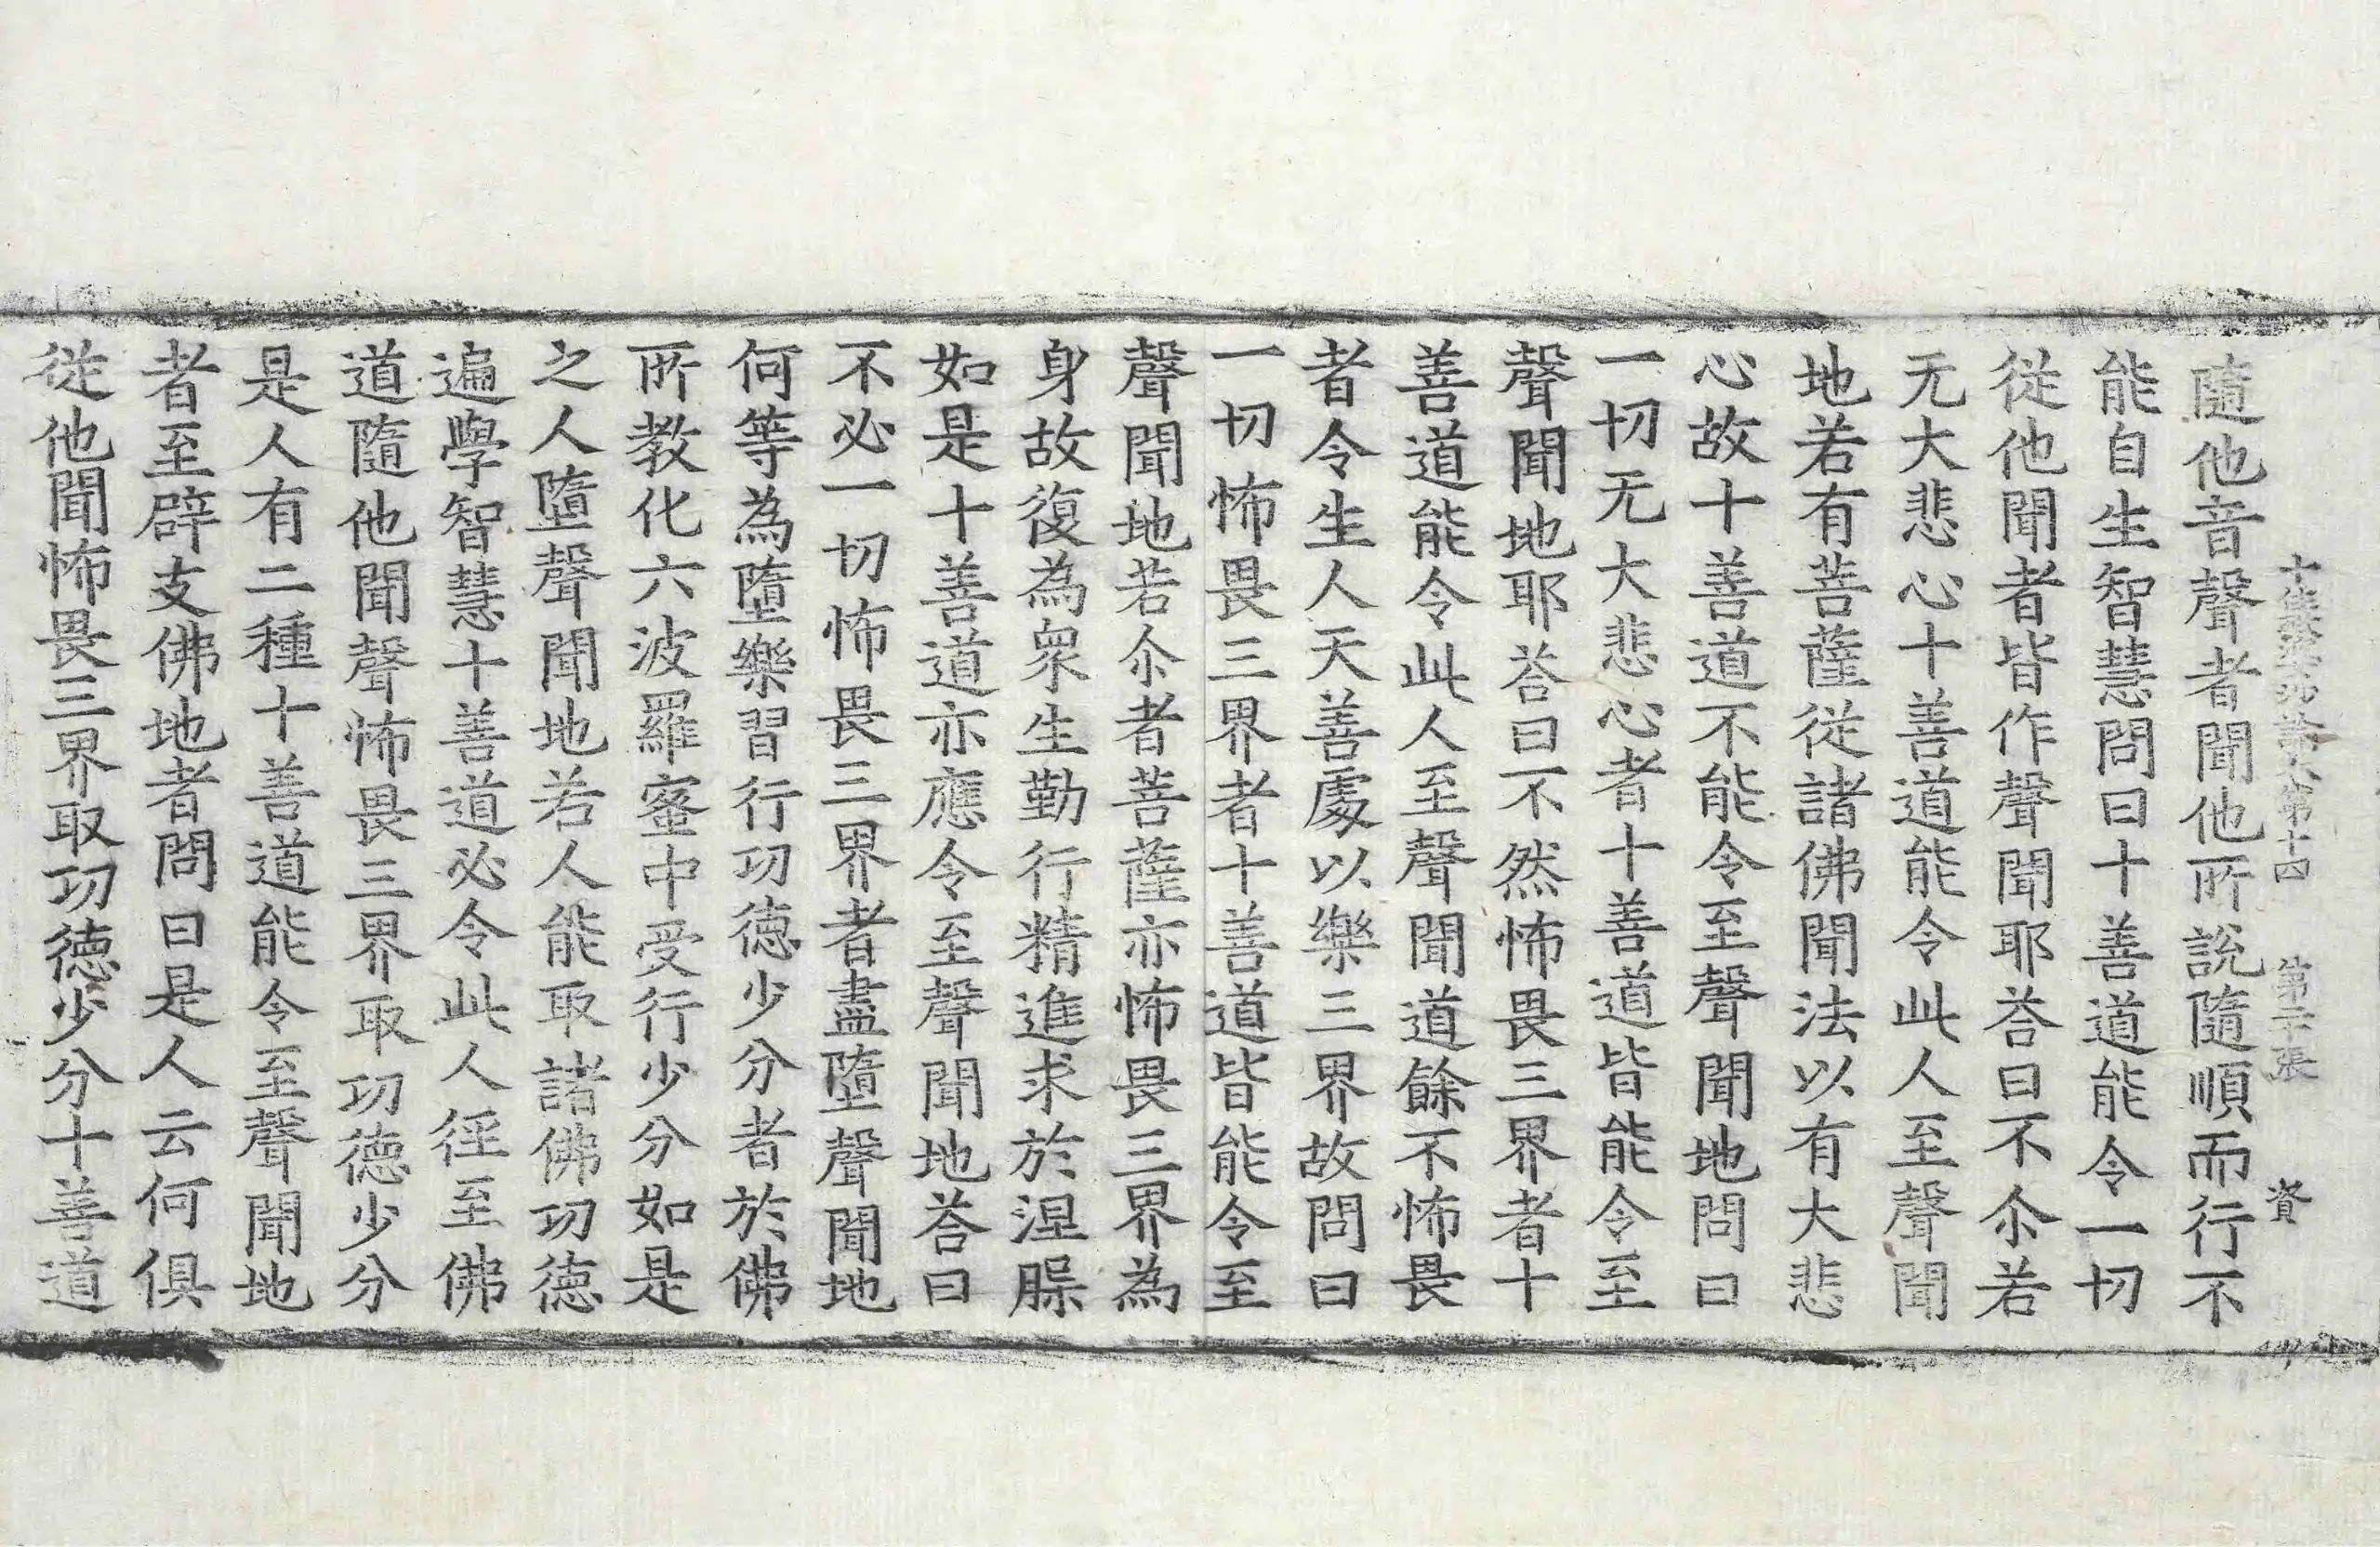 十住毗婆沙論 第十四 第 張 資
隨他音聲者聞他所說隨順而行不
能自生智慧問曰十善道能令一切
從他聞者皆作聲聞耶荅曰不尒若
无大悲心十善道能令此人至聲聞
地若有菩薩從諸佛聞法以有大悲
心故十善道不能令至聲聞地問曰
一切无大悲心者十善道皆能令至
聲聞地耶荅曰不然怖畏三界者十
善道能令此人至聲聞道餘不怖畏
者令生人天善處以樂三界故問曰
一切怖畏三界者十善道皆能令至
聲聞地若尒者菩薩亦怖畏三界為
身故復為衆生勤行精進求於涅槃
如是十善道亦應令至聲聞地荅曰
不必一切怖畏三界者盡墮聲聞地
何等為墮樂習行功德少分者於佛
所教化六波羅蜜中受行少分如是
之人墮聲聞地若人能取諸佛功德
遍學智慧十善道必令此人徑至佛
道隨他聞聲怖畏三界取功德少分
是人有二種十善道能令至聲聞地
者至辟支佛地者問曰是人云何俱
從他聞怖畏三界取功德少分十善道